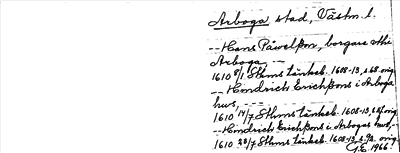 Arboga stad, Västm. l.
-- Hans Påwelßon, borgare uthi
Arboga --
1610 8/1 Sthms tänkeb. 1608-13, s 68. orig.
-- Hindrich Erichßons i Arboga
hus, --
1610 14/7 Sthms tänkeb. 1608-13, orig.
-- Hindrich Erichßons i Arbogas hus, --
1610 28/7 Sthms tänkeb. 1608-13, orig.
G.E. 1966.